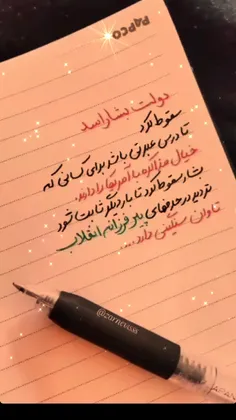 PAPCO
دولت بشار اسد
سقوط کرد
تا درس عبرتی باشد برای کسانی که
خیال مذاکره با آمریکا را دارند.
بشار سقوط کرد تا بار دیگر ثابت شود
تردید در حرف‌های پیر فرزانه انقلاب
تاوان سنگینی دارد...